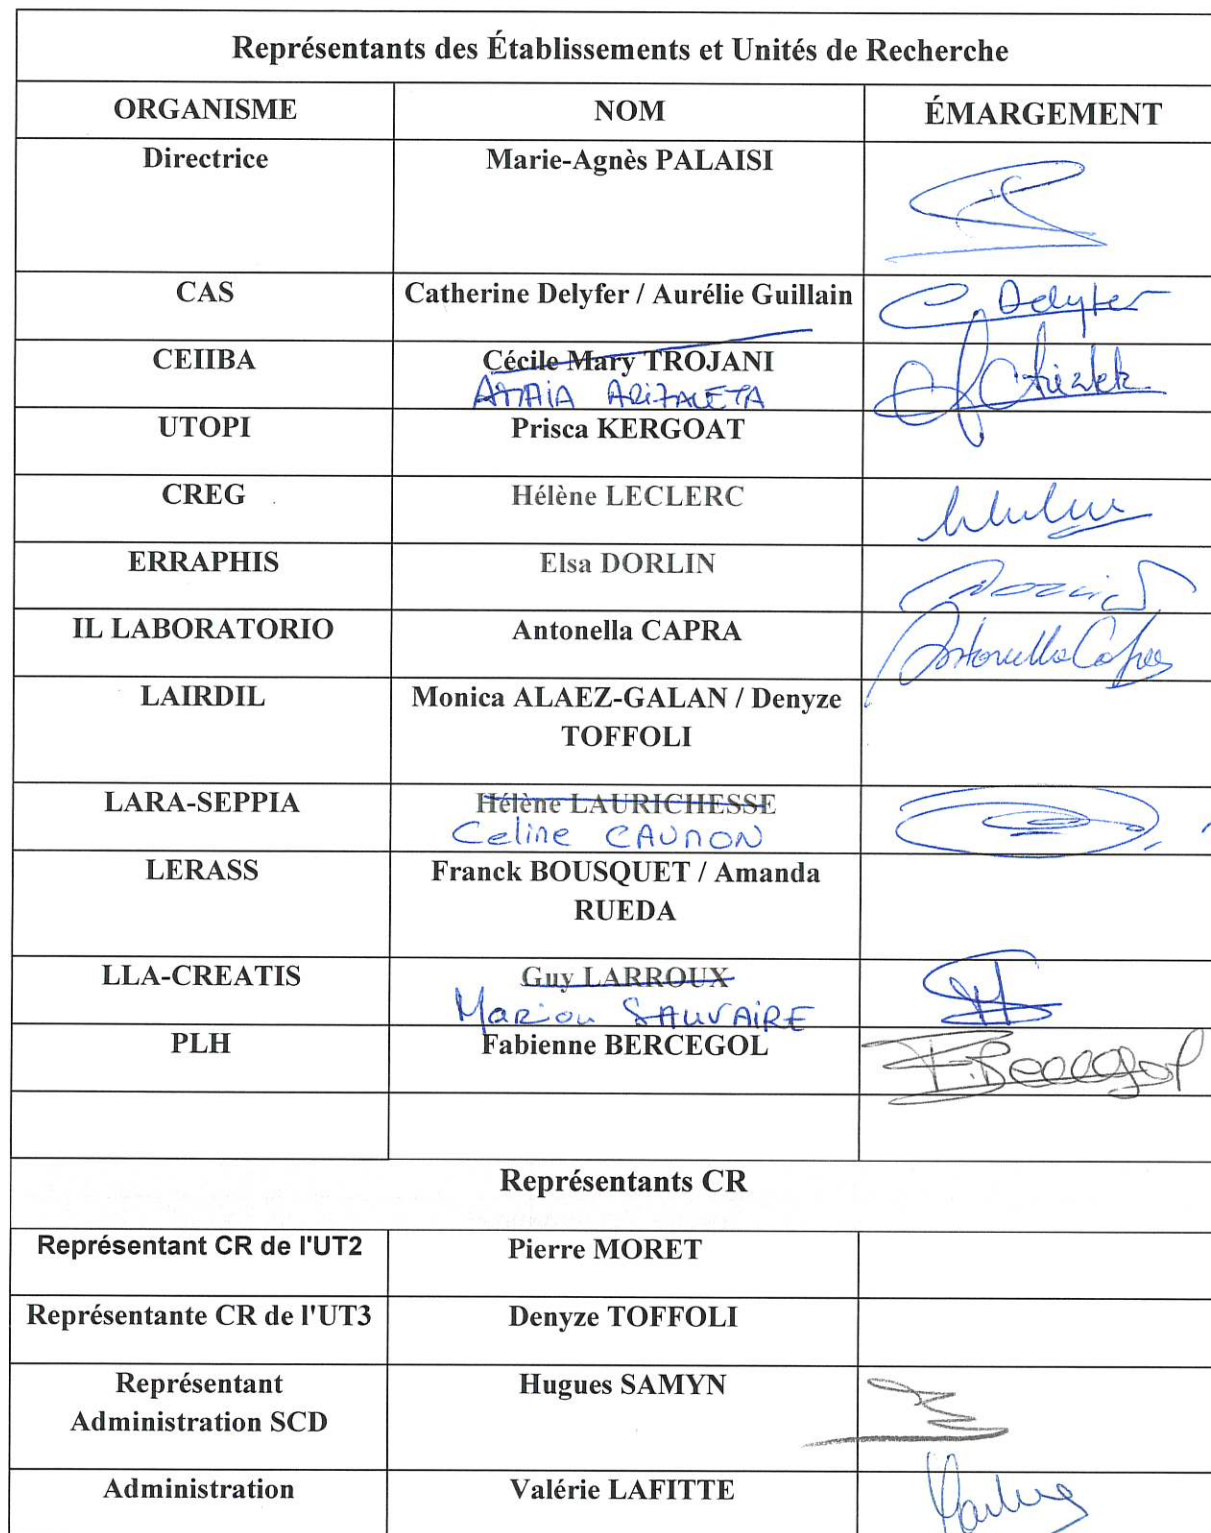 Représentants des Établissements et Unités de Recherche
ORGANISME NOM ÉMARGEMENT
Directrice Marie-Agnès PALAISI
CAS Catherine Delyfer / Aurélie Guillain C. Delyfer
CEIIBA Cécile Mary TROJANI
AMAIA ARIZALETA
UTOPI Prisca KERGOAT
CREG Hélène LECLERC
ERRAPHIS Elsa DORLIN
IL LABORATORIO Antonella CAPRA Antonella Capra
LAIRDIL Monica ALAEZ-GALAN / Denyze
TOFFOLI
LARA-SEPPIA Hélène LAURICHESSE
Celine CAUNON
LERASS Franck BOUSQUET / Amanda
RUEDA
LLA-CREATIS Guy LARROUX
Marion SAUVAIRE
PLH Fabienne BERCEGOL F. Bercegol
Représentants CR
Représentant CR de l'UT2 Pierre MORET
Représentante CR de l'UT3 Denyze TOFFOLI
Représentant Hugues SAMYN
Administration SCD
Administration Valérie LAFITTE